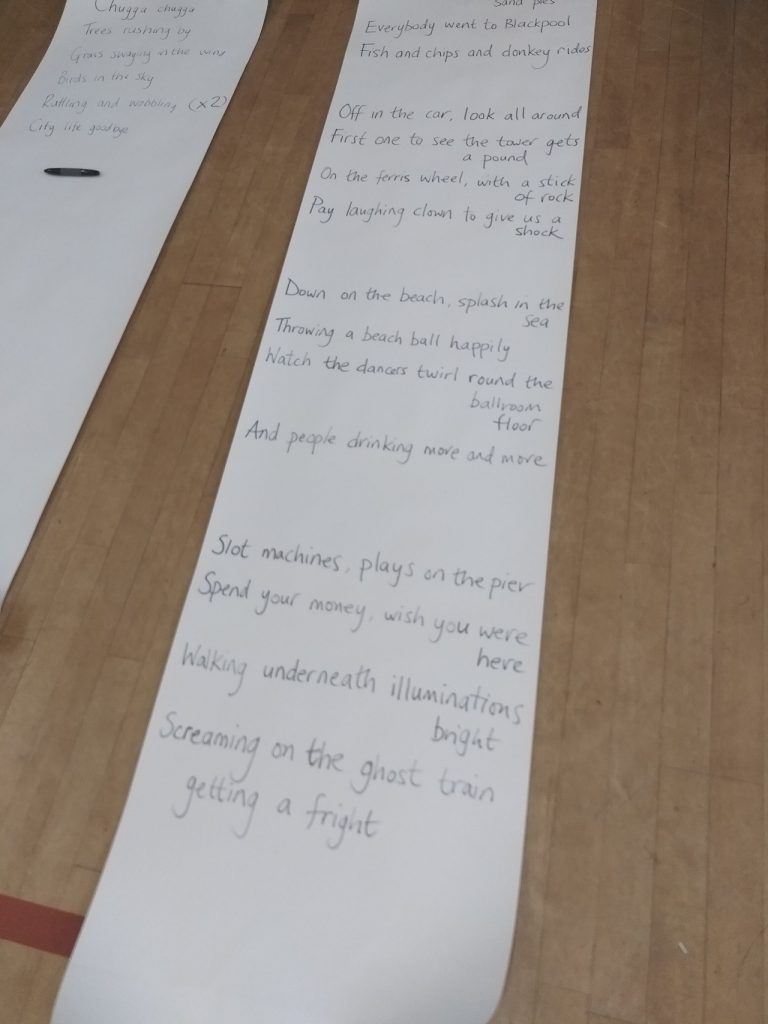 Chugga chugga
Trees rushing by
Grass swaying in the wind
Birds in the sky
Rattling and wobbling (x2)
City life goodbye
Sand pies
Everybody went to Blackpool
Fish and chips and donkey rides
Off in the car, look all around
First one to see the tower gets
a pound
On the ferris wheel, with a stick
of rock
Pay laughing clown to give us a
shock
Down on the beach, splash in the
sea
Throwing a beach ball happily
Watch the dancers twirl round the
ballroom
floor
And people drinking more and more
Slot machines, plays on the pier
Spend your money, wish you were
here
Walking underneath illuminations
bright
Screaming on the ghost train
getting a fright